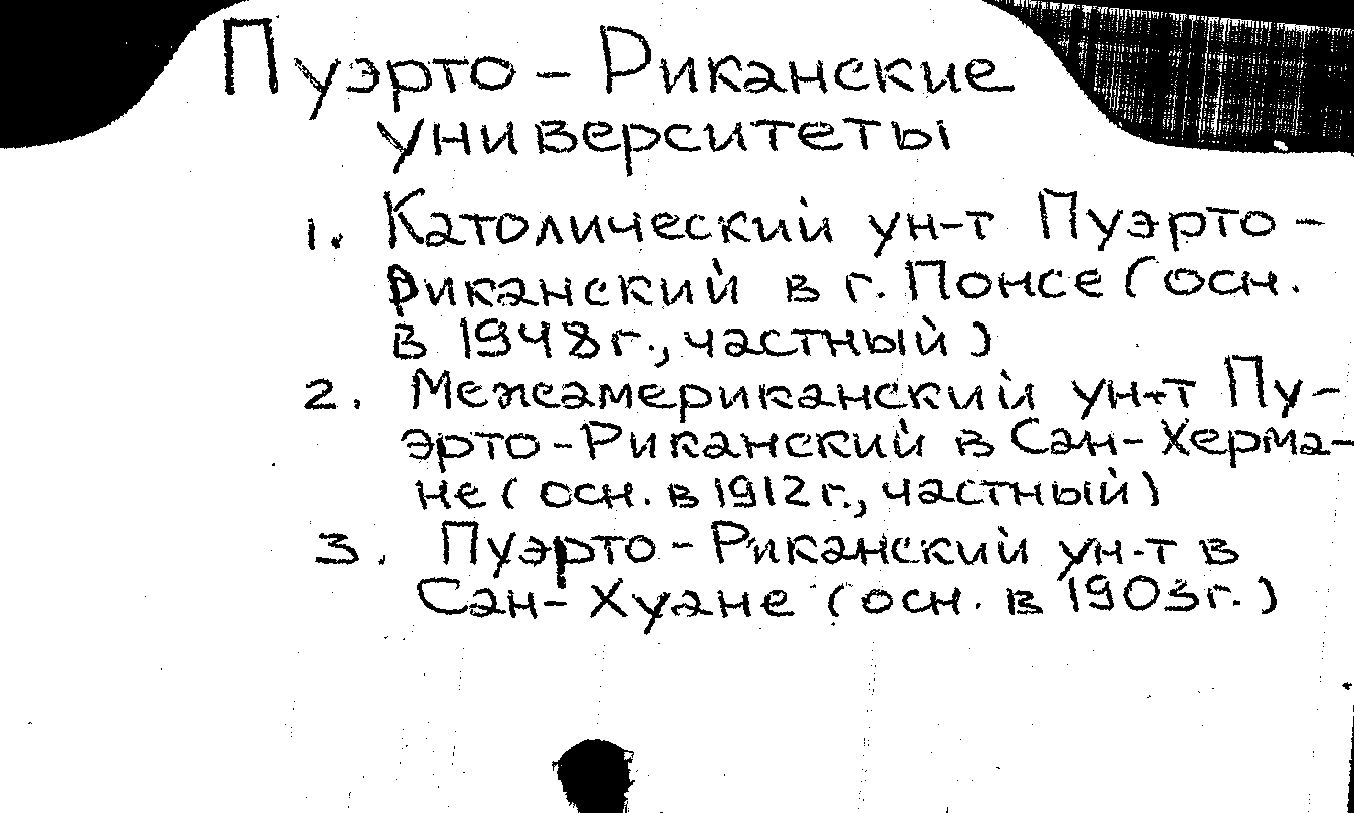 Пуэрто-Риканские
университеты
1. Католический ун-т Пуэрто-
Риканский в г. Понсе (осн.
в 1948г., частный)
2. Межамериканский ун-т Пу-
эрто-Риканский в Сан-Херма-
не (осн. в 1912г., частный)
3. Пуэрто-Риканский ун-т в
Сан-Хуане (осн. в 1903г.)